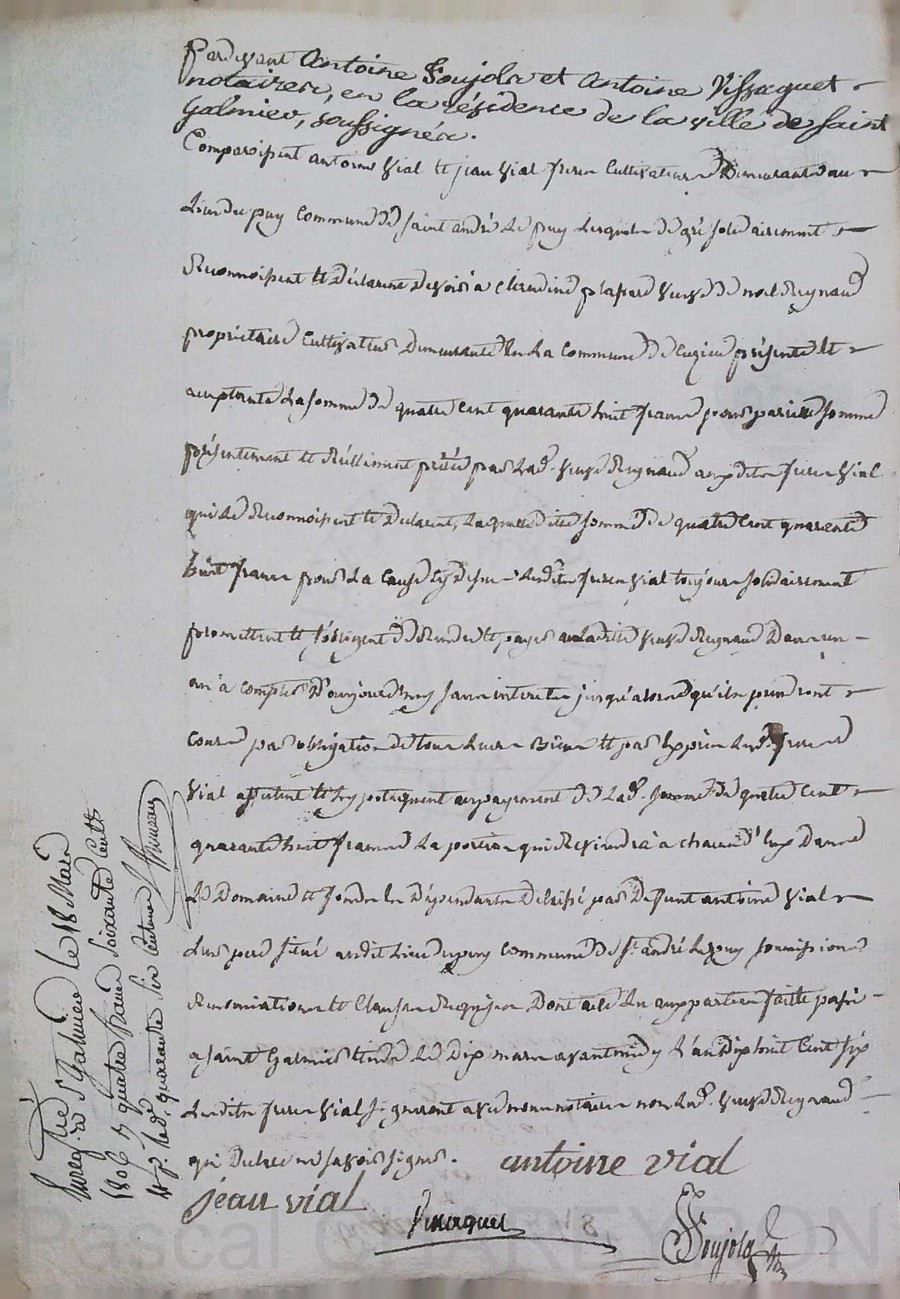 Pardevant Antoine Soujola et Antoine Vissaguet
notaires, en la résidence de la ville de Saint
Galmier, soussignés.
Comparoissent antoine Vial et jean Vial freres Cultivateurs Demeurants au
Lieu du puy Commune de Saint andré Le puy Lesquels de gré solidairement
Reconnoissent et Déclarent Devoir à Claudine plassard Veuve De noel Reynaud
propriétaire Cultivateur Demeurante en La Commune De Cuzieu présente et
acceptante La somme De quatre Cent quarante huit francs pour pareille somme
présentement et Réellement prêtée par Lad. Veuve Reynaud auxdits freres Vial
qui Le Reconnoissent et Déclarent, Laquelle dite somme De quatre Cent quarante
huit francs pour La Cause Cy Dessus Lesdits freres Vial toujours solidairement
promettent et s'obligent De Rendre et payer à Ladite Veuve Reynaud Dans un
an à Compter D'aujourd'huy sans interets jusqu'alors qu'ils prendront
Cours par obligation de tous Leurs Biens et par Exprès Lesd. freres
Vial affectent et hypotequent au payement De Lad. somme De quatre Cent
quarante huit francs La portion qui Reviendra à chacun d'Eux Dans
Le Domaine et fonds En Dépendants Délaissé par Defunt antoine Vial
Leur pere situé audit Lieu du puy Commune De St. andré Le puy soumissions
Renonciations et Clauses Requises Dont acte Lu aux parties fait et passé
a Saint Galmier Etude Le Dix mars avant midy L'an Dix huit Cent six
Lesdits freres Vial signeront avec nous notaires non Lad. Veuve Reynaud
qui Déclare ne savoir signer.
antoine vial
jean vial
Vissaguet
Soujola
Enregtré à St Galmier le 18 Mars
1806 Rç quatre francs soixante Cent.
et pr. le dr. quarante six Centimes
Pascal CHAREYRON